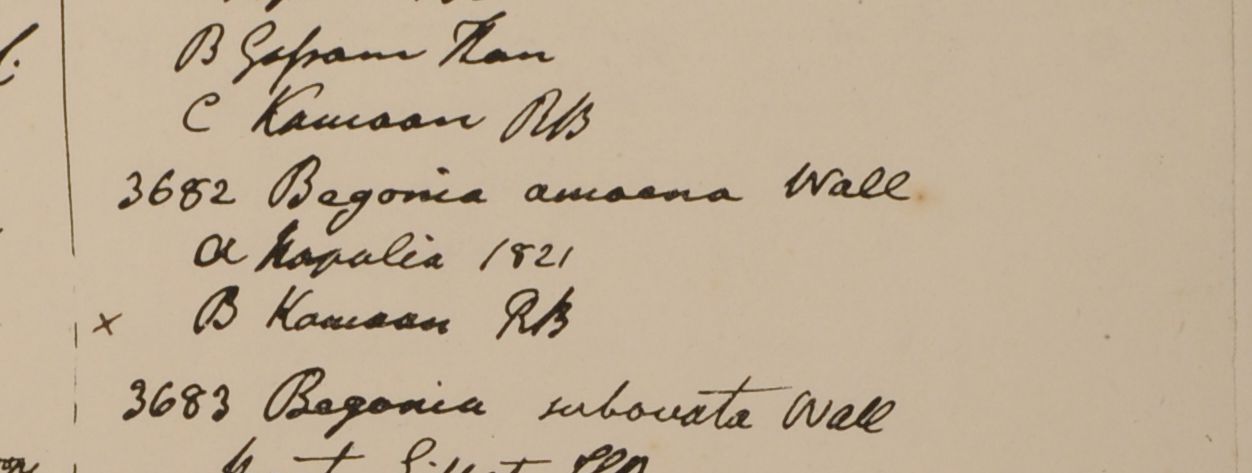 B Gossam Than
C Kamaon RB
3682 Begonia amoena Wall
a Napalia 1821
x B Kamaon RB
3683 Begonia subovata Wall